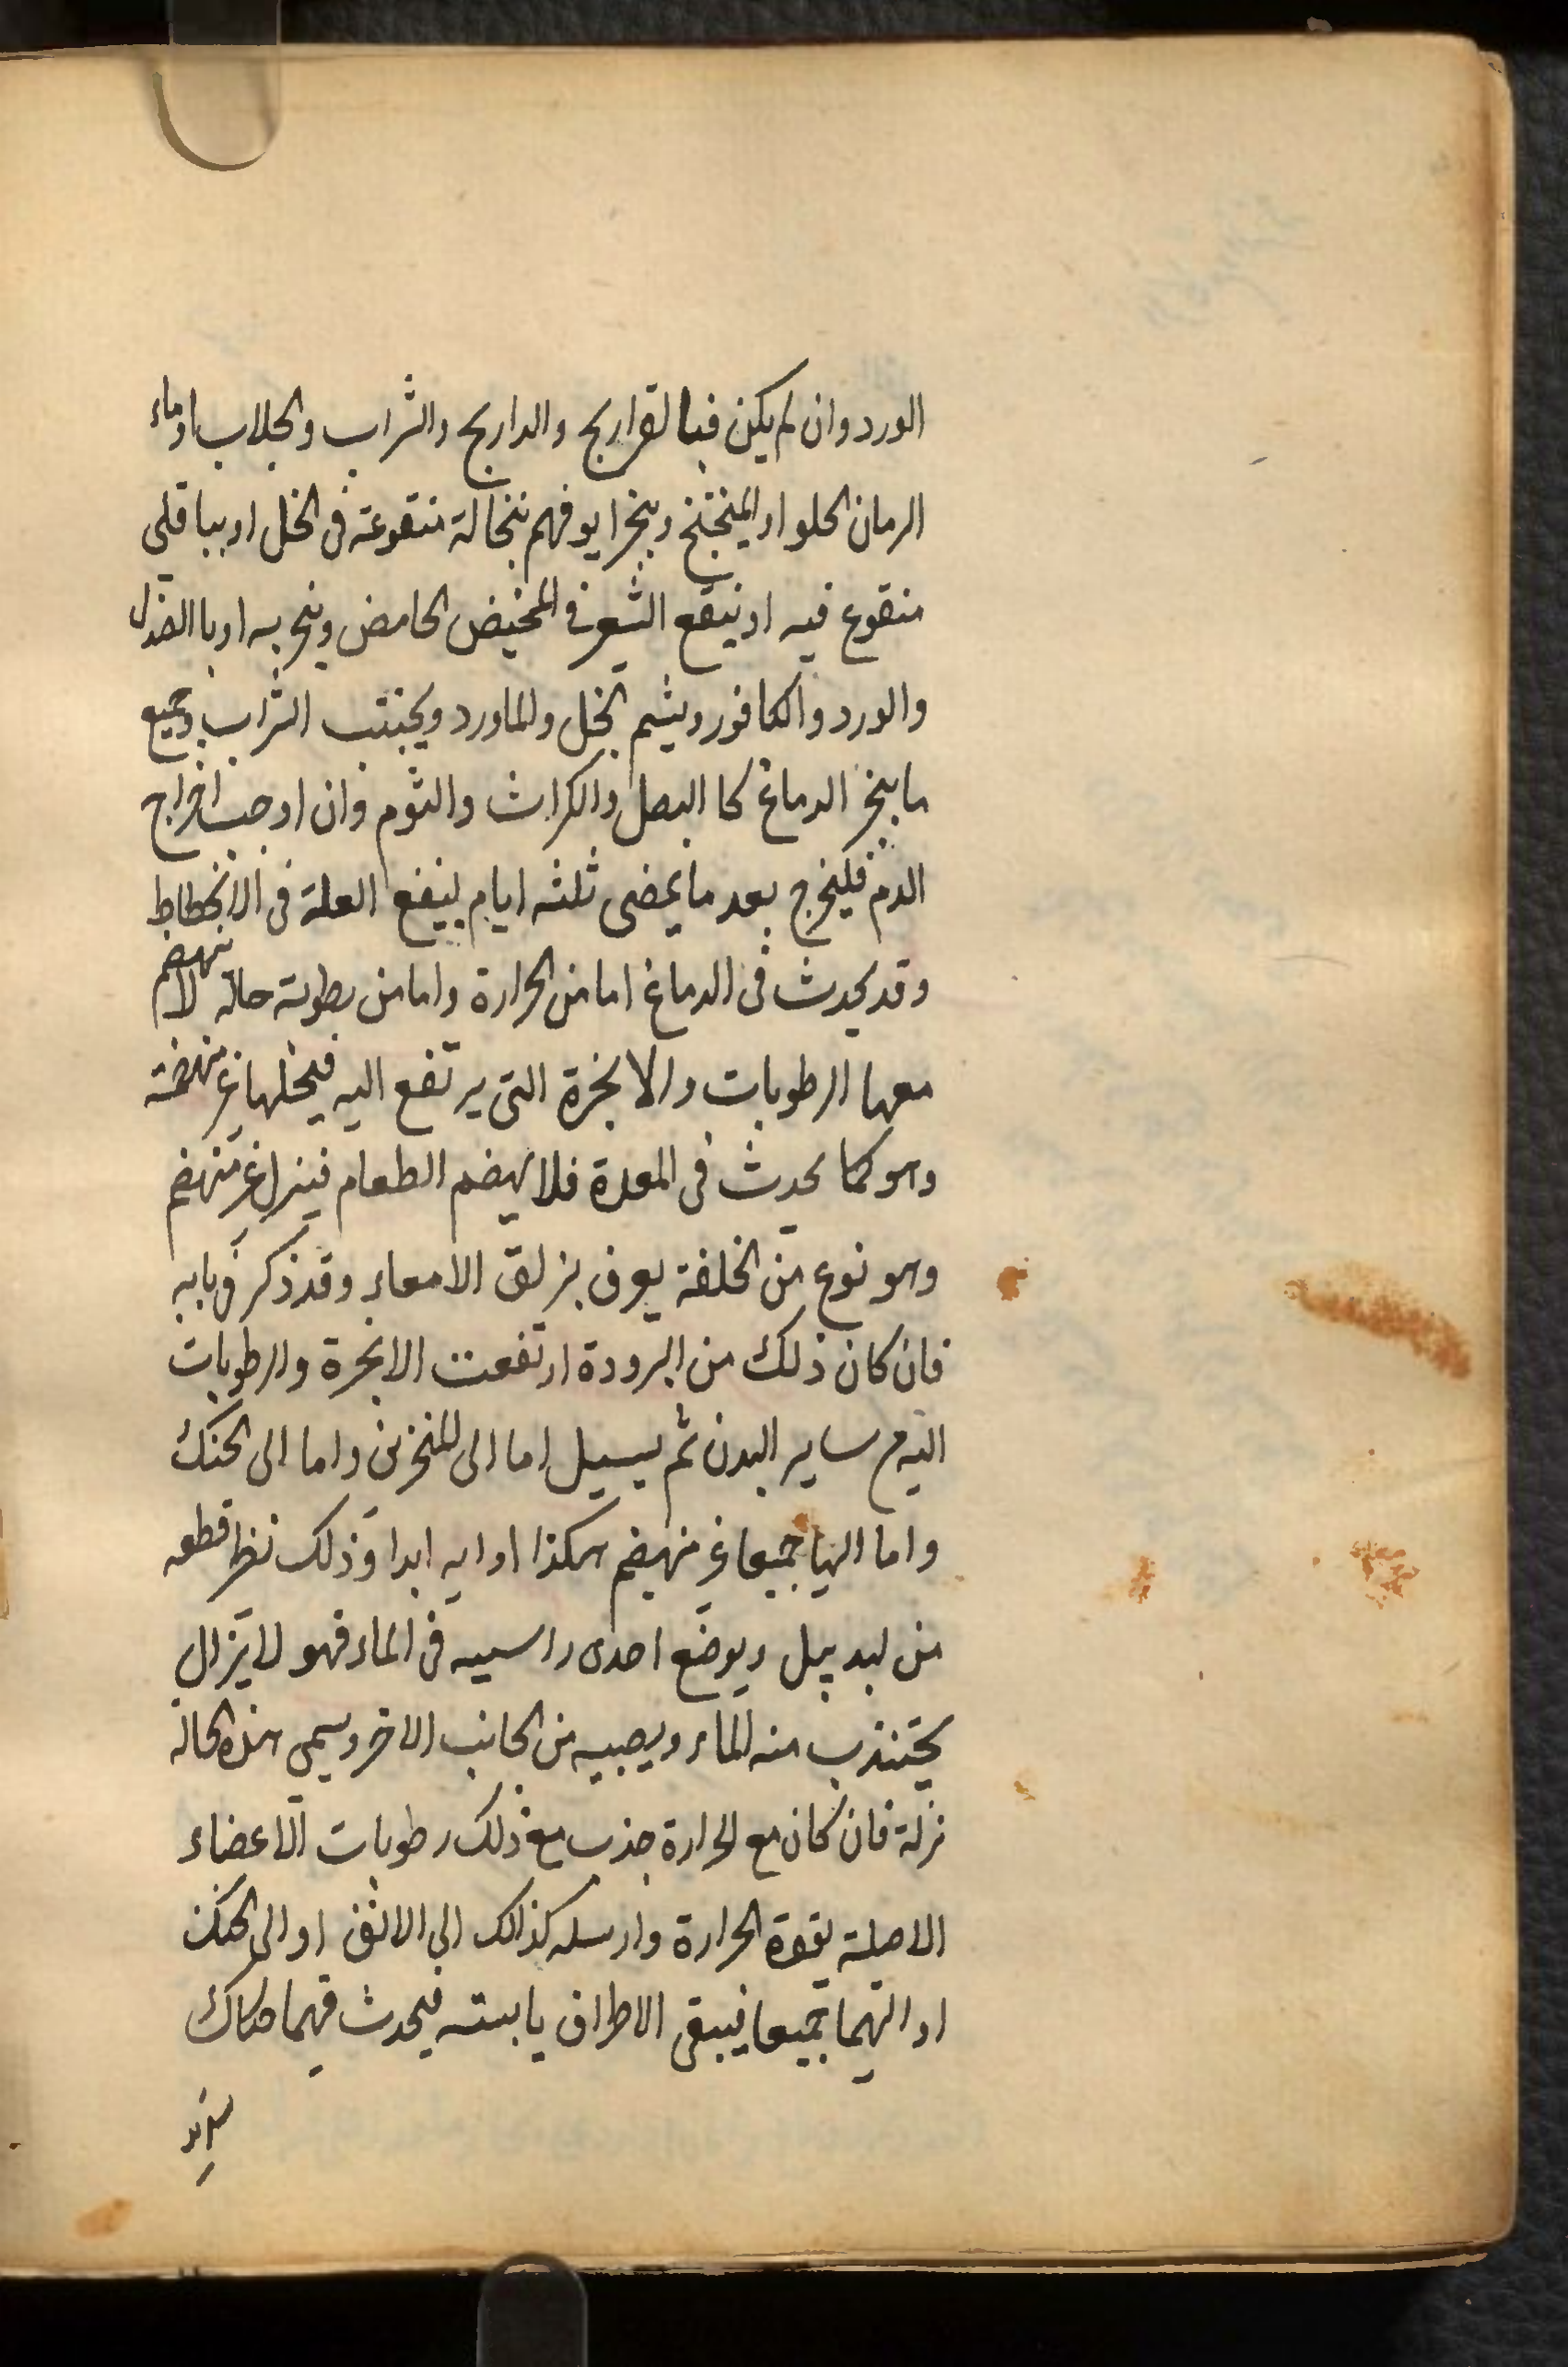 الورد وان لم يكن فبالقراريج والداريج والشراب والجلاب او ماء
الرمان الحلو او الميبختج ويبخر ايوفهم بنخالة منقوعة فى الخل او بباقلى
منقوع فيه او ينقع الشعير فى المخيض الحامض ويبخر به او باالصندل
والورد والكافور ويشم الخل والماورد ويجتنب الشراب وجميع
ما يبخر الدماغ كا البصل والكراث والثوم وان اوجب اخراج
الدم فليخرج بعد ما يمضى ثلثه ايام لينفع العلة فى الانحطاط
وقد يحدث فى الدماغ اما من الحرارة واما من رطوبته حالة لا تنهضم
معها الرطوبات والابخرة التى يرتفع اليه فيحللها غير منهضمة
وهو كما يحدث فى المعدة فلا يهضم الطعام فينزل غير منهضم
وهو نوع من الخلفة يعرف بزلق الامعاء وقد ذكر فى بابه
فان كان ذلك من البرودة ارتفعت الابخرة والرطوبات
اليه من ساير البدن ثم يسيل اما الى المنخرين واما الى الحنك
واما اليها جميعا غير منهضم هكذا ادايه ابدا وذلك نظير قطعه
من لبد يبل ويوضع احدى راسيه فى الماء فهو لا يزال
يجتذب منه الماء ويصبيه من الجانب الاخر ويسمى هذه الحالة
نزلة فان كان مع الحرارة جذب مع ذلك رطوبات الاعضاء
الاصلية بقوة الحرارة وارسله كذالك الى الانف او الى الحنك
او اليهما جميعا فيبقى الاطراف يابسته فيحدث فيهما حكاك